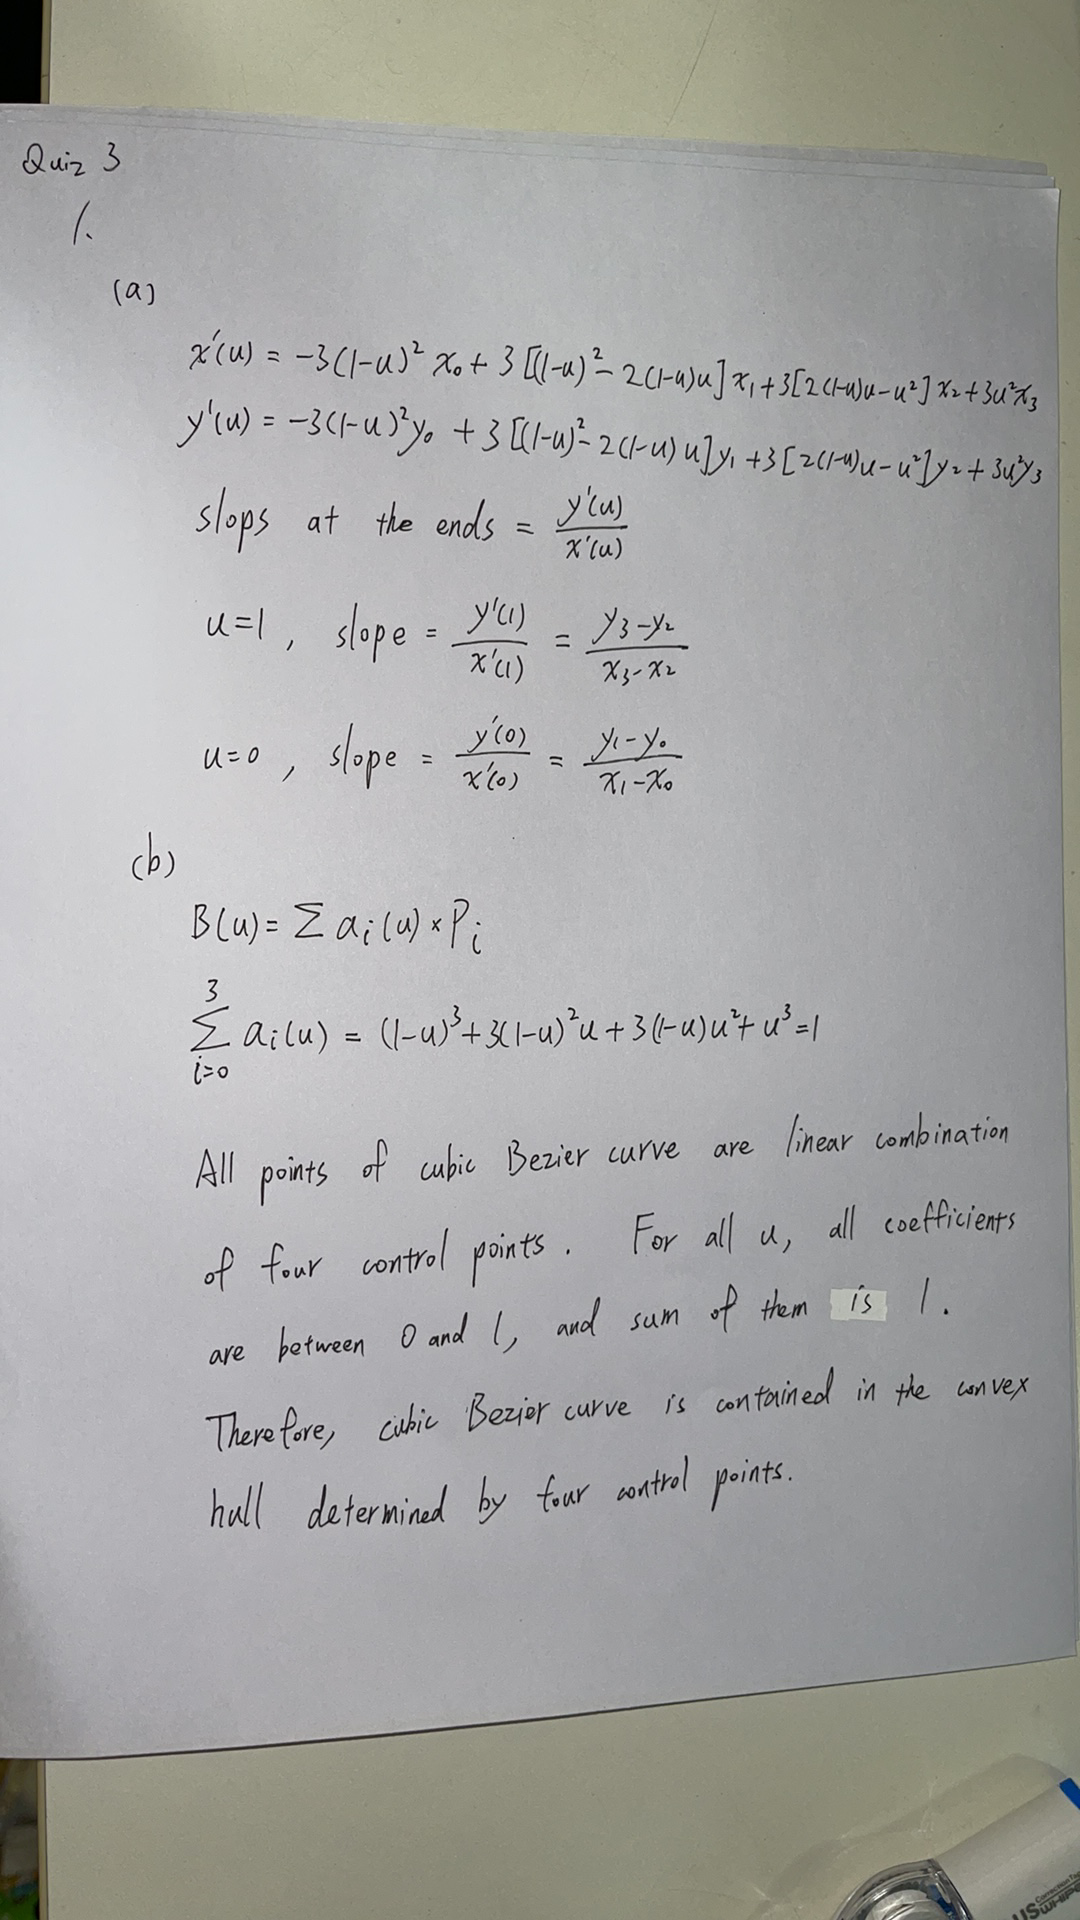 Quiz 3
1.
(a)
x'(u) = -3(1-u)² x₀ + 3[(1-u)² - 2(1-u)u] x₁ + 3[2(1-u)u - u²] x₂ + 3u²x₃
y'(u) = -3(1-u)² y₀ + 3[(1-u)² - 2(1-u)u] y₁ + 3[2(1-u)u - u²] y₂ + 3u²y₃
slops at the ends = y'(u) / x'(u)
u=1, slope = y'(1) / x'(1) = y₃-y₂ / x₃-x₂
u=0, slope = y'(0) / x'(0) = y₁-y₀ / x₁-x₀
(b)
B(u) = Σ aᵢ(u) × Pᵢ
3
Σ aᵢ(u) = (1-u)³ + 3(1-u)²u + 3(1-u)u² + u³ = 1
i=0
All points of cubic Bezier curve are linear combination
of four control points. For all u, all coefficients
are between 0 and 1, and sum of them is 1.
Therefore, cubic Bezier curve is contained in the convex
hull determined by four control points.